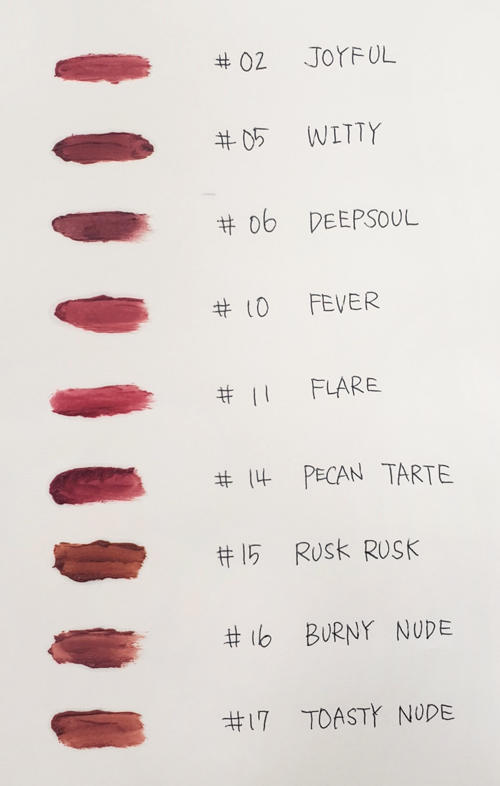 # 02 JOYFUL
# 05 WITTY
# 06 DEEPSOUL
# 10 FEVER
# 11 FLARE
# 14 PECAN TARTE
# 15 RUSK RUSK
# 16 BURNY NUDE
# 17 TOASTY NUDE